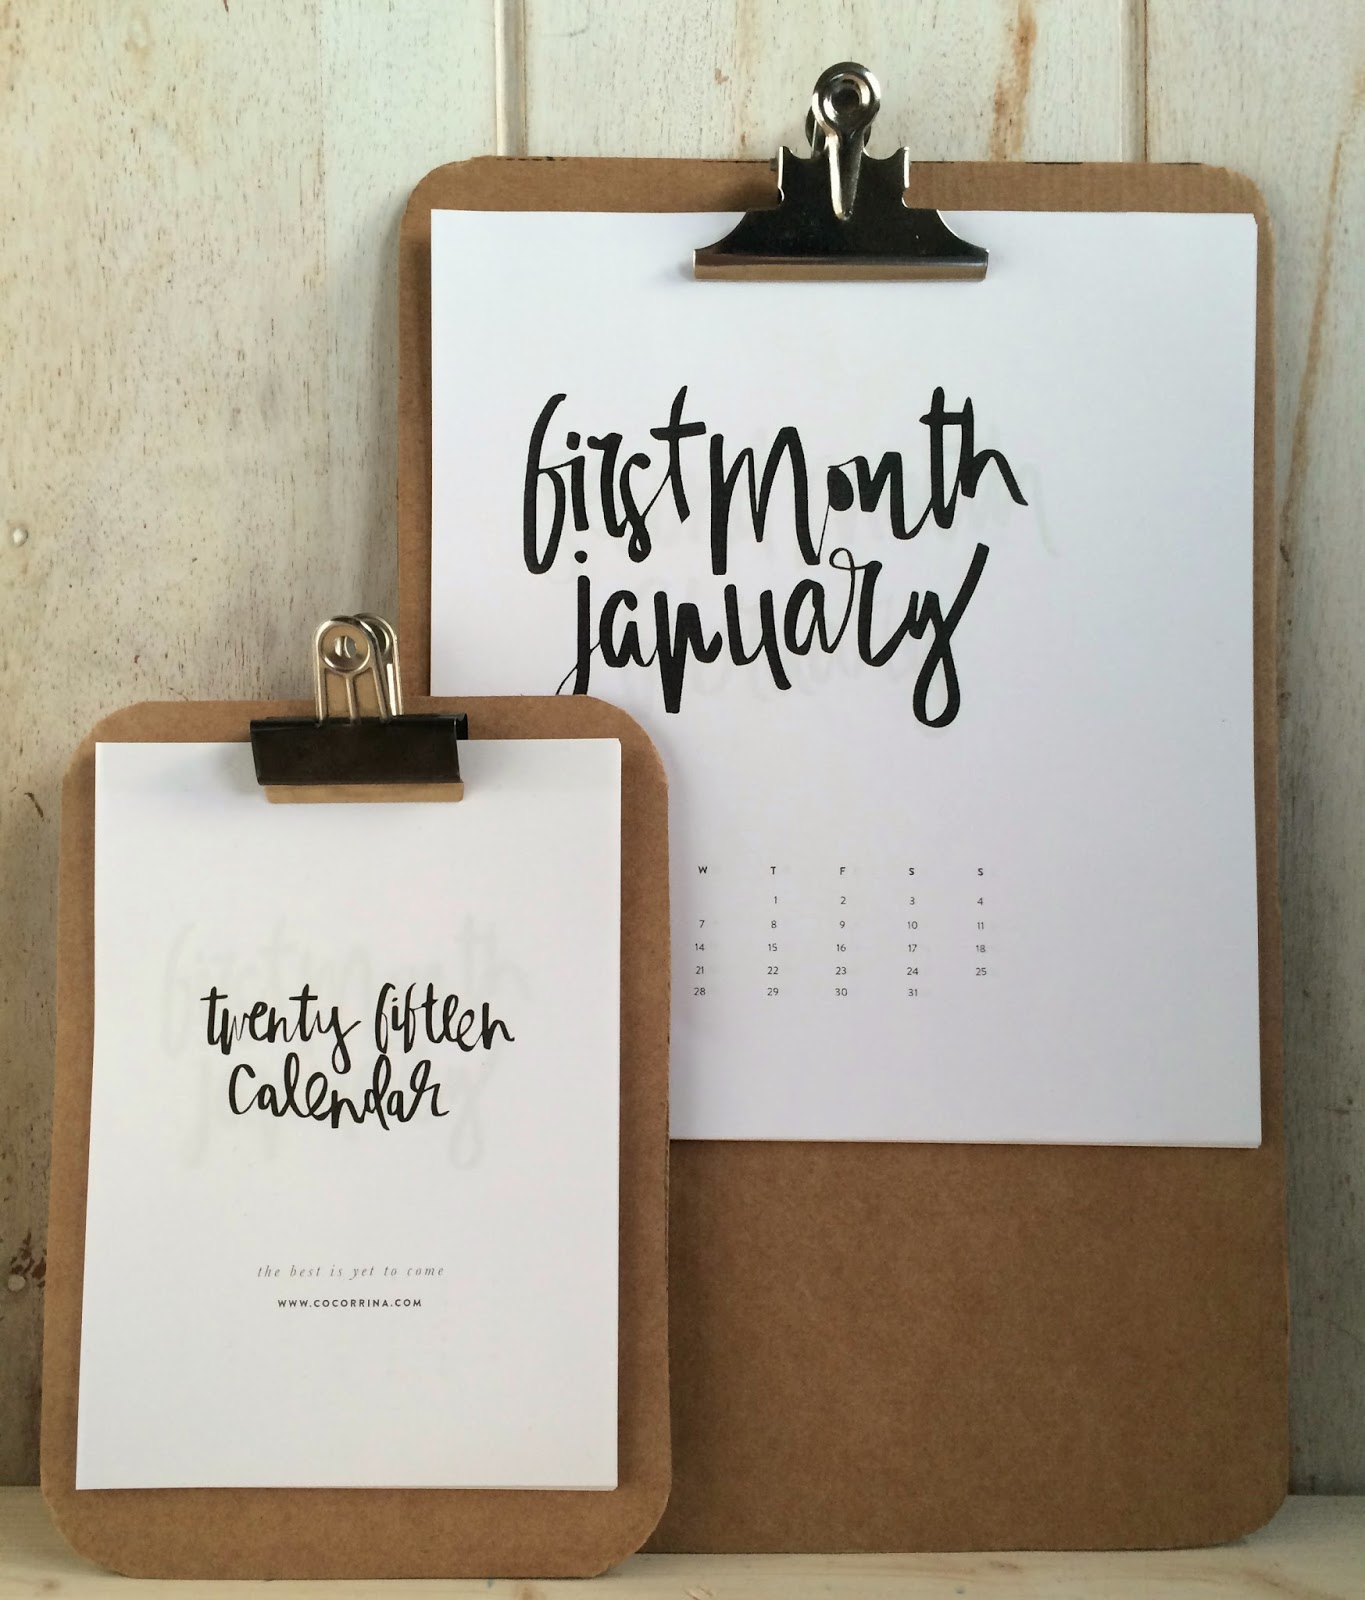 first month
january
W T F S S
1 2 3 4
7 8 9 10 11
14 15 16 17 18
21 22 23 24 25
28 29 30 31
twenty fifteen
calendar
the best is yet to come
WWW.COCORRINA.COM